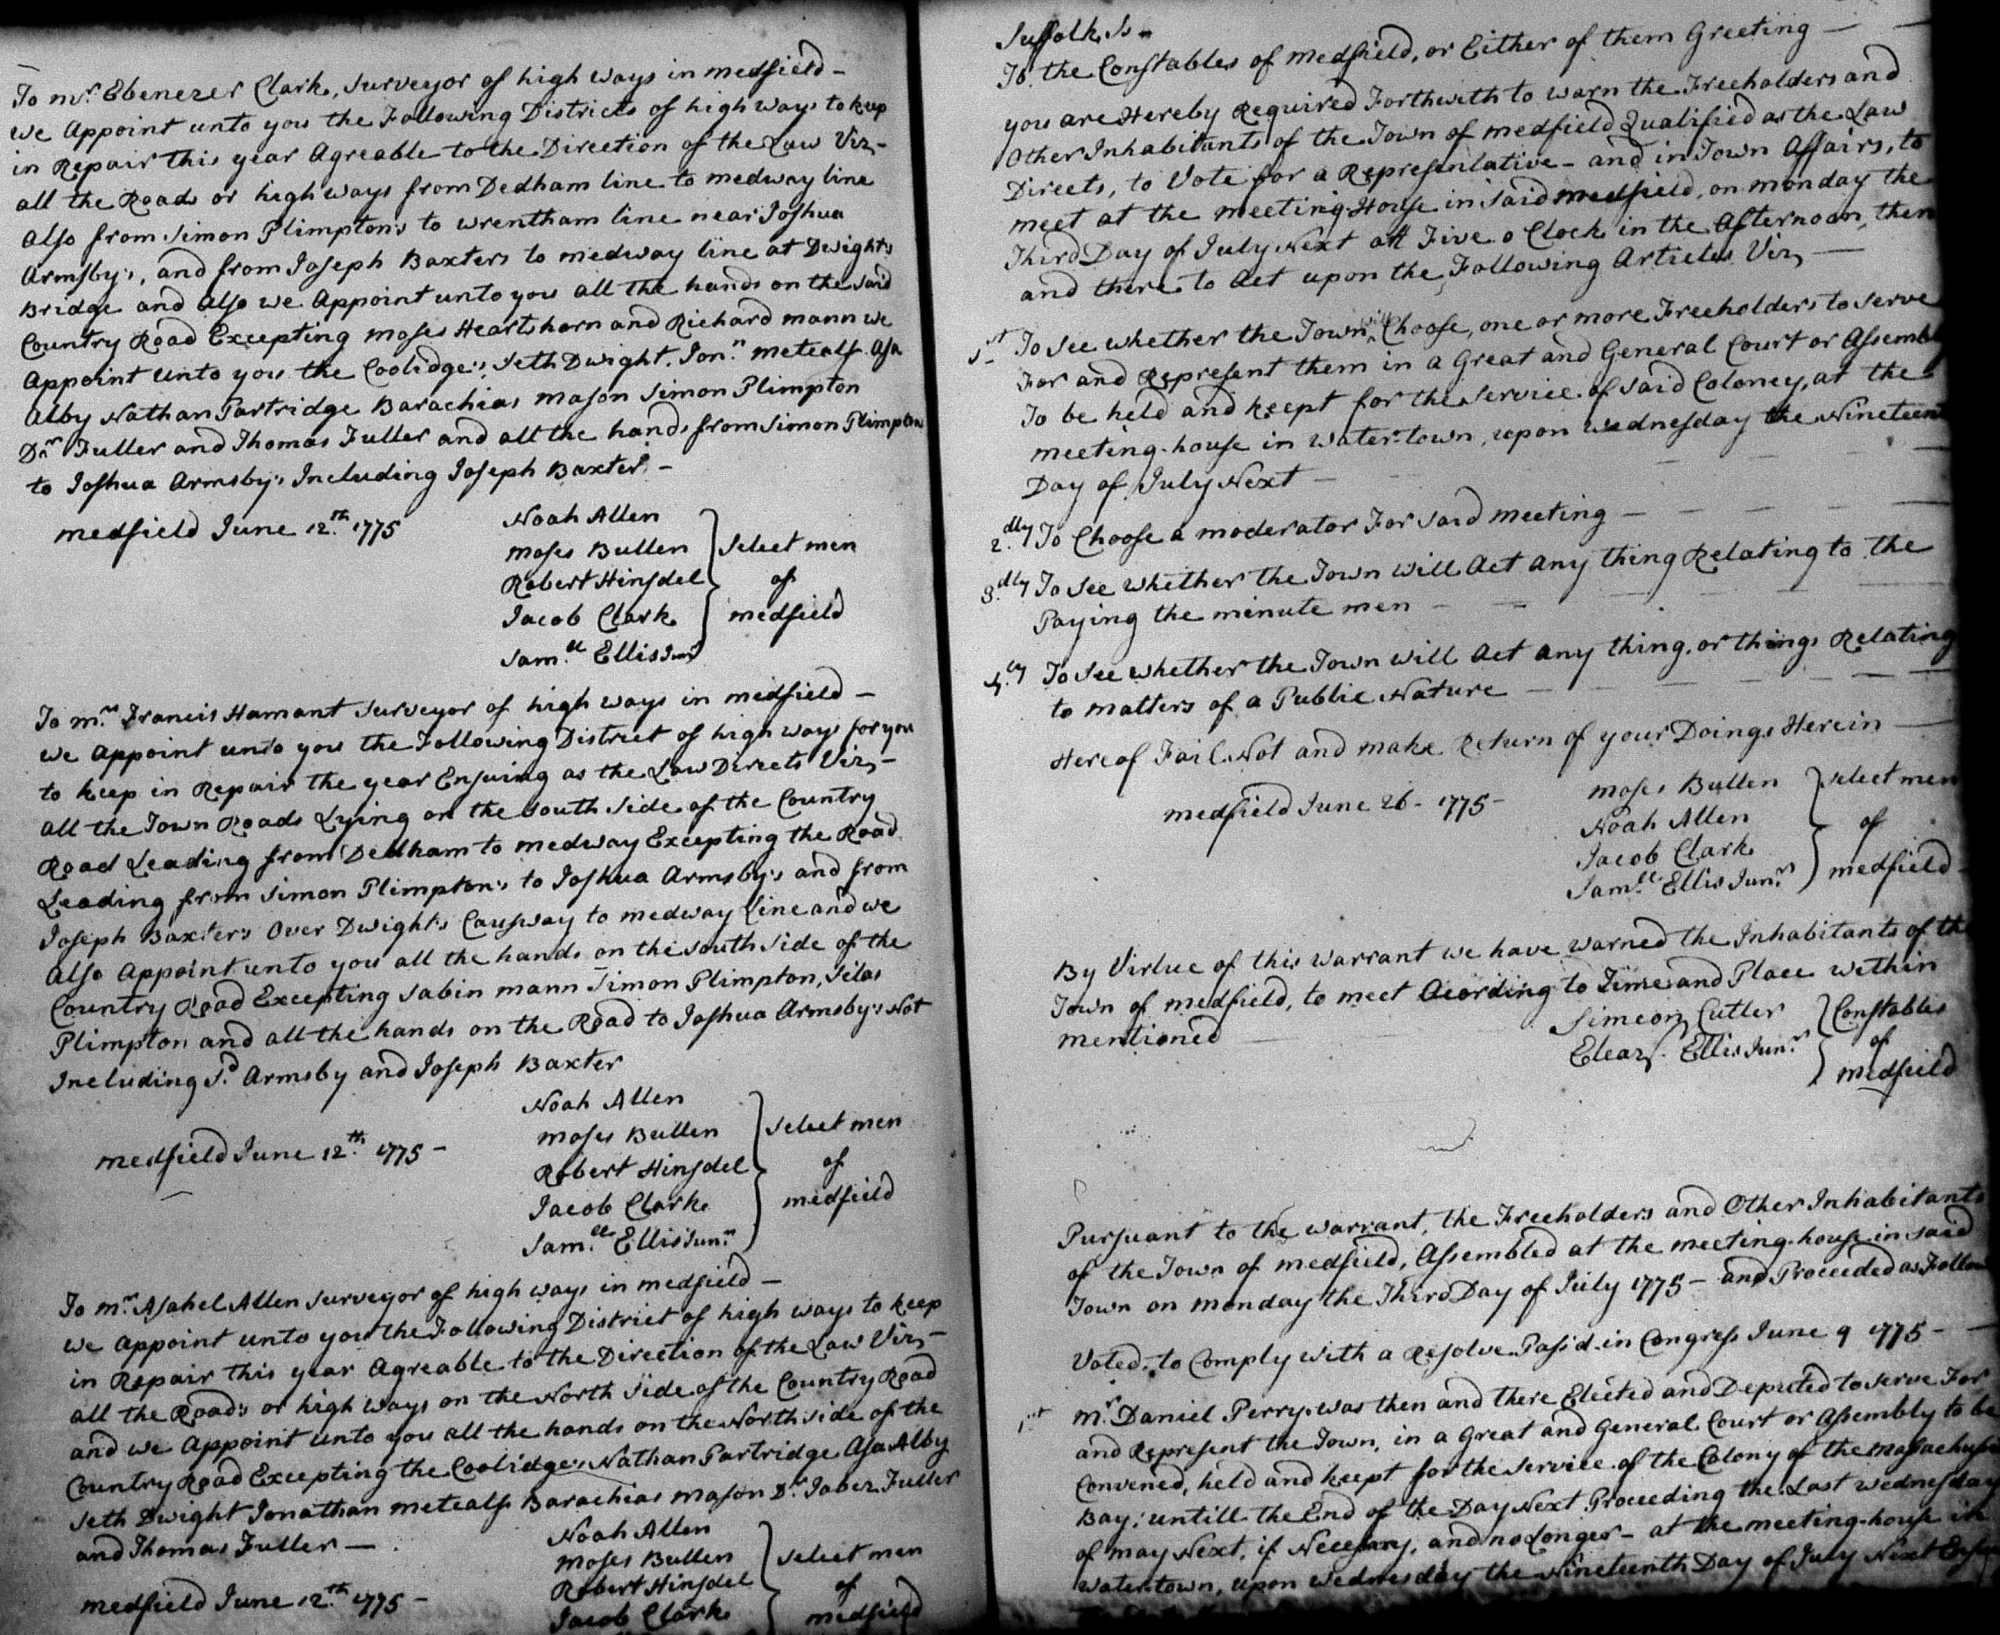 To mr. Ebenezer Clark, Surveyor of high ways in medfield -
we Appoint unto you the Following Districts of high ways to keep
in Repair this year Agreable to the Direction of the Law Viz, -
all the Roads or high ways from Dedham line to medway line
Also from Simon Plimpton's to wrentham line near Joshua
Armsby's, and from Joseph Baxters to medway line at Dwights
Bridge and Also we Appoint unto you all the hands on the said
Country Road Excepting Moses Heartshorn and Richard mann we
Appoint unto you the Coolidge's, Seth Dwight, Jon.n metcalf Asa
Alby Nathan Partridge Barachias mason Simon Plimpton
Dr. Fuller and Thomas Fuller and all the hands from Simon Plimpton
to Joshua Armsby's Including Joseph Baxter -
medfield June 12th 1775
Noah Allen
Moses Bullen
Robert Hinsdel
Jacob Clark
Sam.ll Ellis Junr
Select men
of
medfield
To m.r Francis Hamant Surveyor of high ways in medfield -
we Appoint unto you the Following District of high ways for you
to keep in Repair the year Ensuing as the Law Directs Viz, -
all the Town Roads Lying on the South Side of the Country
Road Leading from Dedham to medway Excepting the Road
Leading from Simon Plimpton's to Joshua Armsby's and from
Joseph Baxters Over Dwight's Causway to medway Line and we
Also Appoint unto you all the hands on the South Side of the
Country Road Excepting Sabin mann Simon Plimpton, Silas
Plimpton and all the hands on the Road to Joshua Armsby's Not
Including Sd. Armsby and Joseph Baxter
medfield June 12th 1775 -
Noah Allen
Moses Bullen
Robert Hinsdel
Jacob Clark
Sam.ll Ellis Jun.r
Select men
of
medfield
To mr. Asahel Allen Surveyor of high ways in medfield -
we Appoint unto you the Following District of high ways to keep
in Repair this year Agreable to the Direction of the Law Viz, -
all the Roads or high ways on the North Side of the Country Road
and we Appoint unto you all the hands on the North side of the
Country Road Excepting the Coolidges Nathan Partridge Asa Alby
Seth Dwight Jonathan metcalf Barachias mason Dr. Jabez Fuller
and Thomas Fuller -
medfield June 12th 1775 -
Noah Allen
Moses Bullen
Robert Hinsdel
Jacob Clark
Select men
of
medfield
Suffolk, Ss -
To the Constables of medfield, or Either of them Greeting -
you are Hereby Required Forthwith to warn the Freeholders and
Other Inhabitants of the Town of medfield Qualified as the Law
Directs, to Vote for a Representative - and in Town Affairs, to
meet at the meeting House in said medfield, on monday the
Third Day of July Next att Five o Clock in the Afternoon, then
and there to Act upon the Following Articles Viz, -
1st To See whether the Town will Choose, one or more Freeholders to Serve
For and Represent them in a Great and General Court or Assembly
To be held and keept for the Service of Said Coloney, at the
meeting-house in Watertown, upon wednesday the Nineteenth
Day of July Next -
2.dly To Choose a moderator For said meeting -
3.dly To See whether the Town will Act any thing Relating to the
Paying the minute men -
4.ly To See whether the Town will Act any thing, or things Relating
to matters of a Public Nature -
Hereof Fail Not and make Return of your Doings Herein -
medfield June 26 - 1775 -
Moses Bullen
Noah Allen
Jacob Clark
Sam.ll Ellis Jun.r
Select men
of
medfield -
By Virtue of this warrant we have warned the Inhabitants of the
Town of medfield, to meet Acording to Time and Place within
mentioned
Simeon Cutler
Eleaz.r Ellis Jun.r
Constables
of
medfield
Pursuant to the warrant, the Freeholders and Other Inhabitants
of the Town of medfield, Assembled at the meeting-house in said
Town on monday the Third Day of July 1775 - and Proceeded as Follow
Voted, to Comply with a Resolve Pass'd in Congress June 9 1775 -
1st mr. Daniel Perry was then and there Elected and Deputed to Serve For
and Represent the Town, in a Great and General Court or Assembly to be
Convened, held and keept for the Service of the Colony of the Massachusetts
Bay; untill the End of the Day Next Proceeding the Last wednesday
of may Next, if Necessary, and no Longer - at the meeting-house in
Watertown, upon Wednesday the Nineteenth Day of July Next